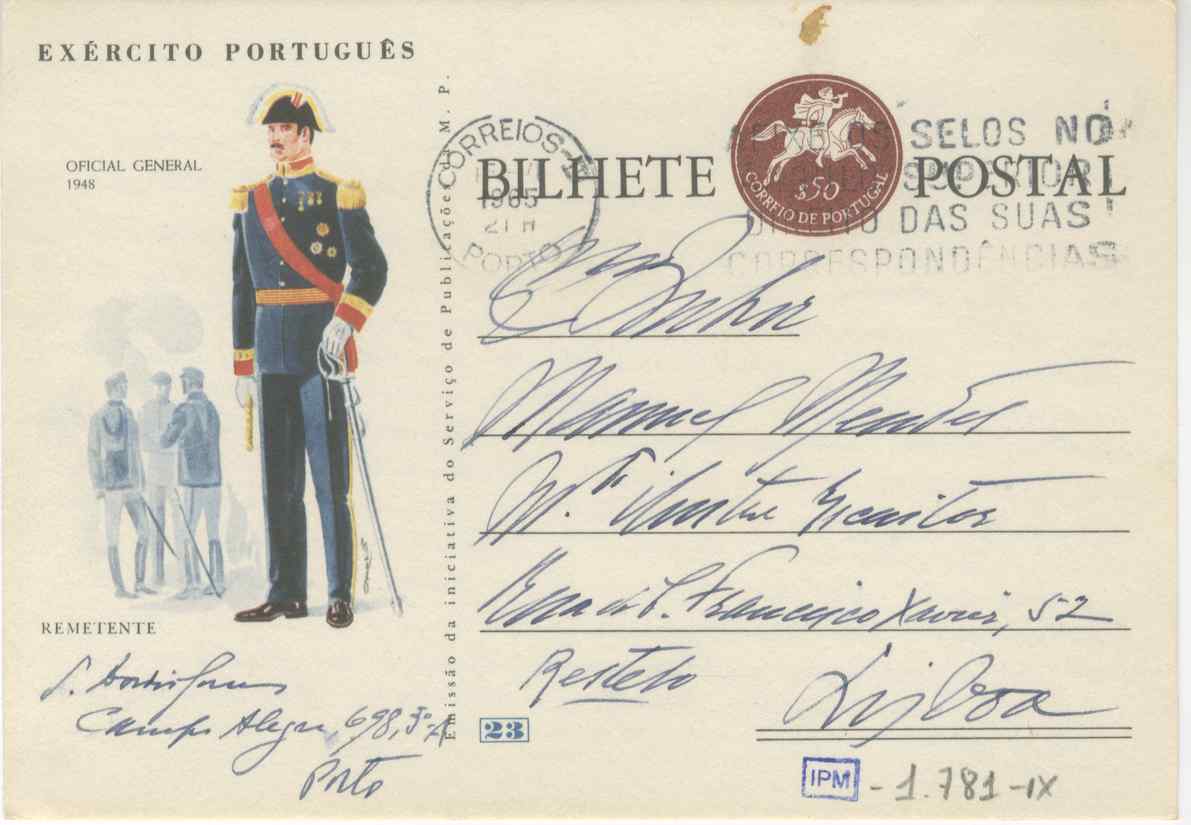 EXÉRCITO PORTUGUÊS
OFICIAL GENERAL
1948
REMETENTE
Campo Alegre, 698, 3º-A
Porto
Emissão da iniciativa do Serviço de Publicações da M. P.
CORREIOS
1965
21 H
PORTO
BILHETE POSTAL
$50
CORREIO DE PORTUGAL
SELOS NO
SUPERIOR
DIREITO DAS SUAS
CORRESPONDÊNCIAS
Senhor
Manuel Mendes
Mº Ilustre Escritor
Rua de S. Francisco Xavier, 52
Restelo
Lisboa
23
IPM - 1.781-IX